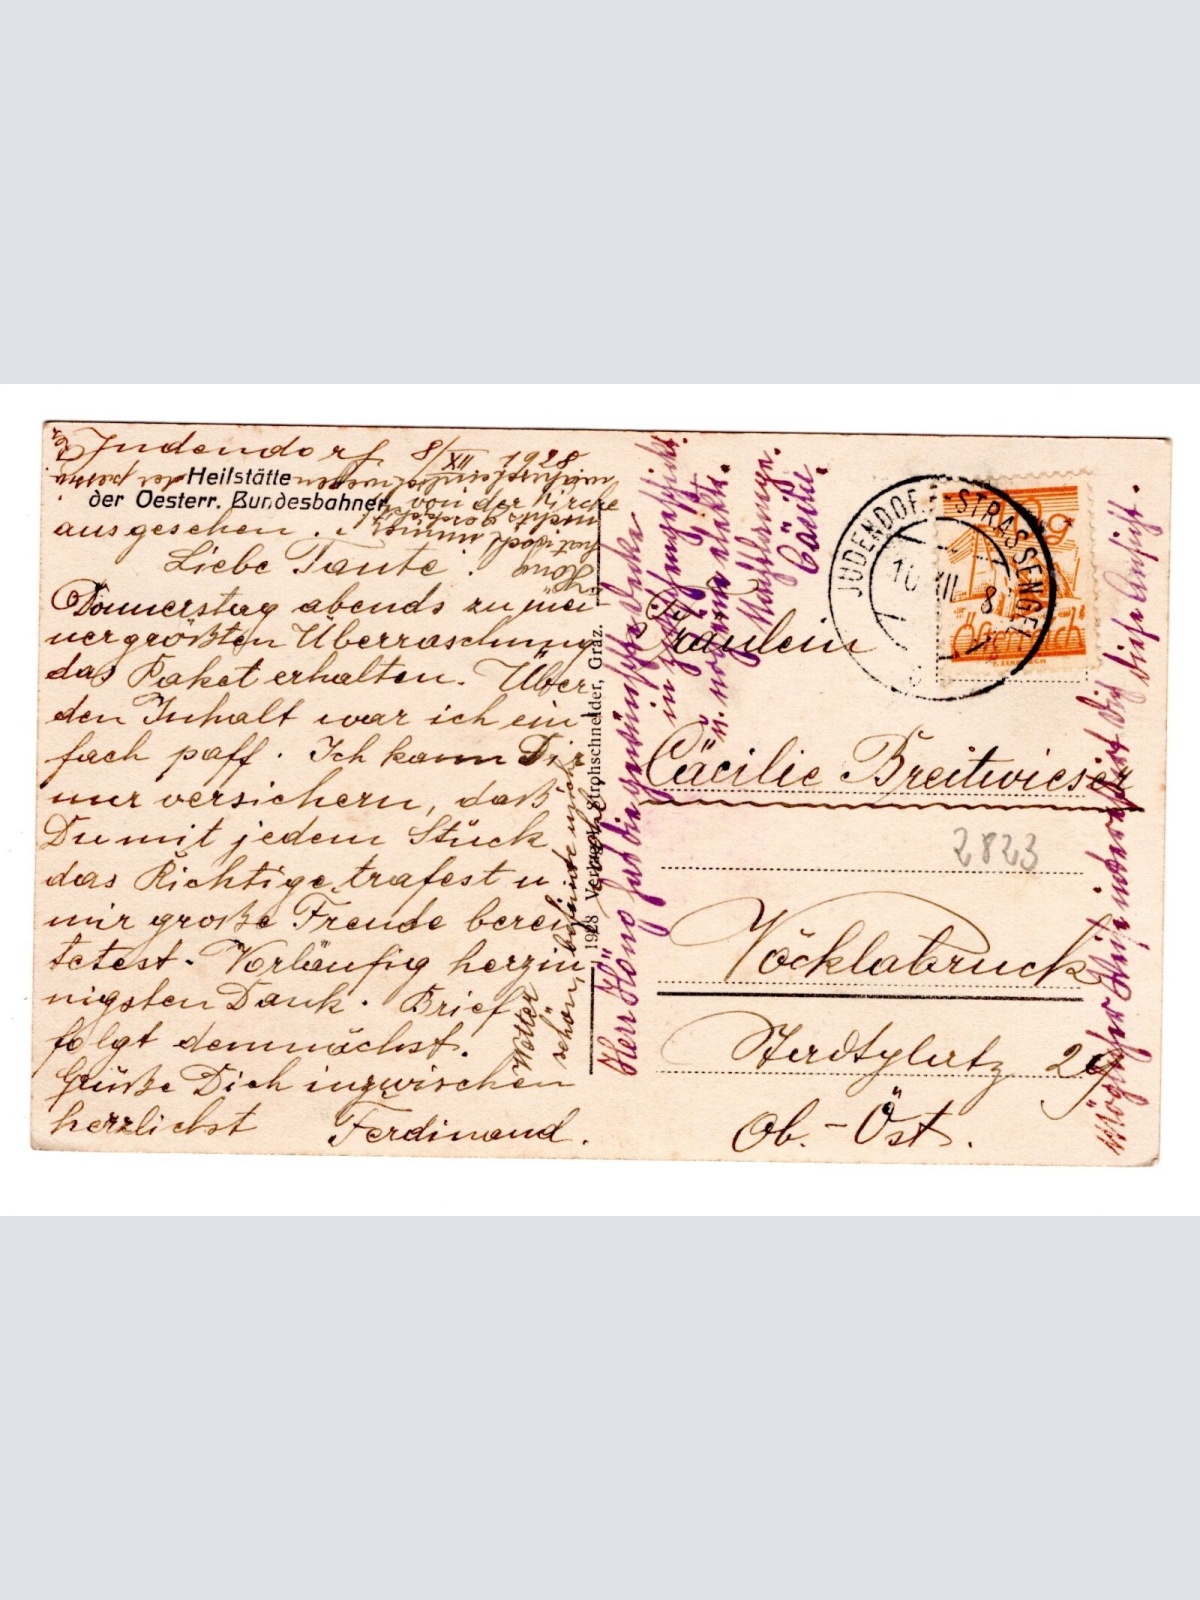 Judendorf 8/XII 1928
Heilstätte
der Oesterr. Bundesbahner
von der Kirche
ausgesehen.
hat doch immer
König
Liebe Tante!
Donnerstag abends zu mei-
ner größten Überraschung
das Paket erhalten. Über
den Inhalt war ich ein-
fach paff. Ich kann Dir
nur versichern, daß
Du mit jedem Stück
das Richtige trafest u.
mir große Freude berei-
tetest. Vorläufig herzin-
nigsten Dank. Brief
folgt demnächst.
Grüße Dich inzwischen
herzlichst Ferdinand.
Wetter
schön, befinde mich
1928 Verlag Strohschneider, Graz.
Herr König hat die gewünschte Decke
in Ordnung geschickt.
u. nochmals
Cäcilie.
JUDENDORF-STRASSENGEL
10 XII 8
Österreich
Fräulein
Cäcilie Breitwieser
2823
Vöcklabruck
Stadtplatz 29
Ob.-Öst.
diese Ansicht.